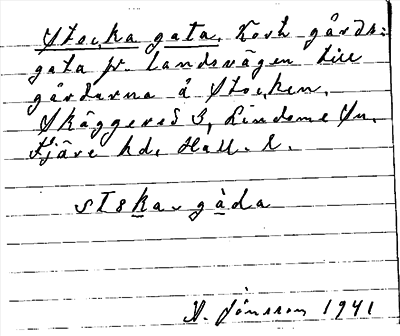 Stocka gata. Kort gårds:
gata fr. landsvägen till
gårdarna å Stocken,
Skäggered 3, Lindome Sn.
Fjäre hd. Hall. l.
stska-gàda
A. Jönsson 1941